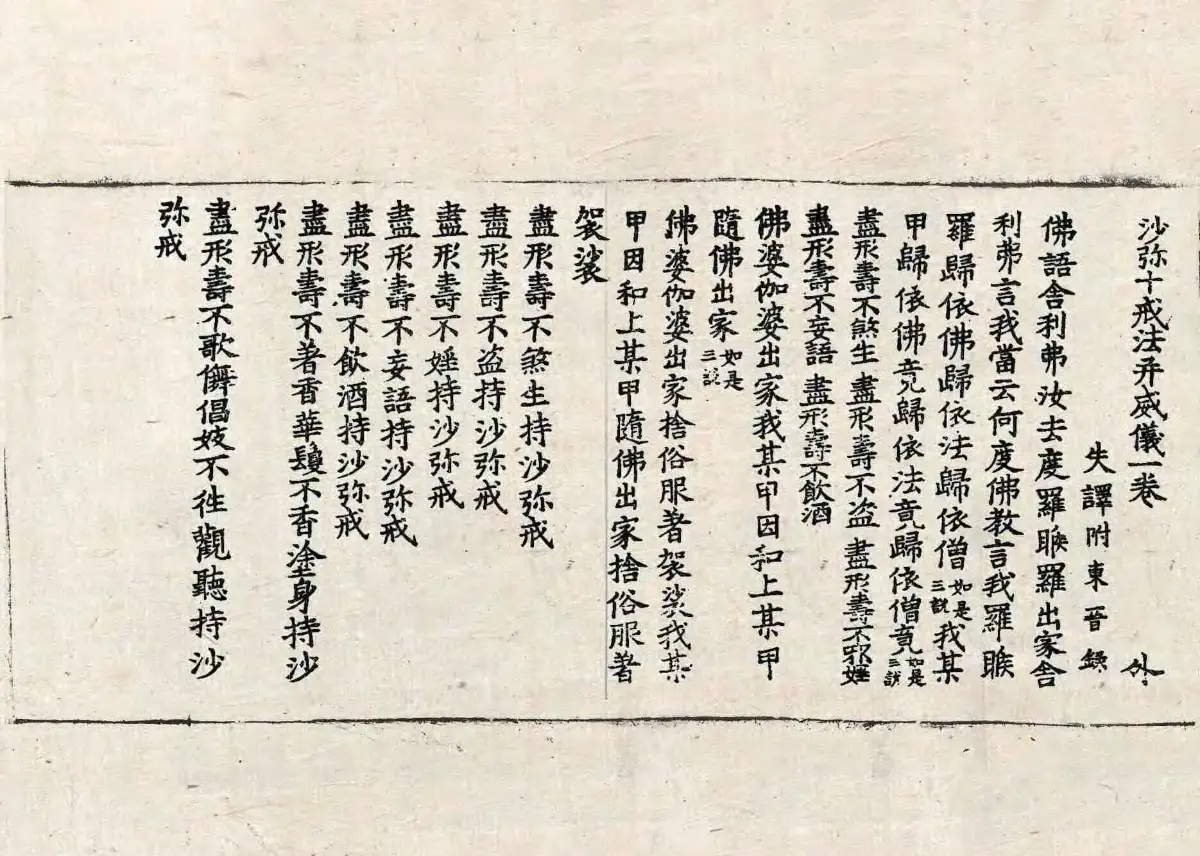 沙弥十戒法并威儀一卷 外
失譯附東晉録
佛語舍利弗汝去度羅睺羅出家舍
利弗言我當云何度佛教言我羅睺
羅歸依佛歸依法歸依僧如是三說我某
甲歸依佛竟歸依法竟歸依僧竟如是三說
盡形壽不煞生盡形壽不盗盡形壽不邪婬
盡形壽不妄語盡形壽不飲酒
佛婆伽婆出家我某甲因和上某甲
隨佛出家如是三說
佛婆伽婆出家捨俗服著袈裟我某
甲因和上某甲隨佛出家捨俗服著
袈裟
盡形壽不煞生持沙弥戒
盡形壽不盗持沙弥戒
盡形壽不婬持沙弥戒
盡形壽不妄語持沙弥戒
盡形壽不飲酒持沙弥戒
盡形壽不著香華鬘不香塗身持沙
弥戒
盡形壽不歌儛倡妓不徃觀聽持沙
弥戒